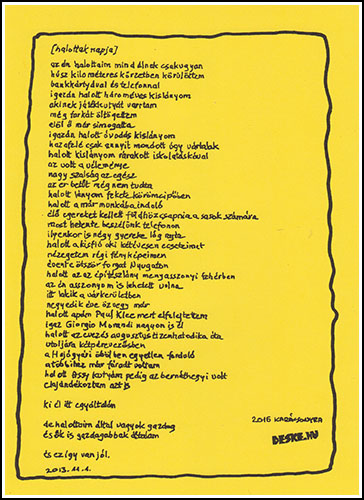 [halottak napja]
az én halottaim mind élnek csakugyan
húsz kilométeres körzetben körülöttem
bankkártyával és telefonnal
igazán halott hároméves kislányom
akinek játékkutyát varrtam
még farkát öltögettem
elöl ő már simogatta
igazán halott óvodás kislányom
hazafelé csak annyit mondott úgy vártalak
halott kislányom rárakott iskolatáskával
az volt a véleménye
nagy szalság az egész
az er betűt még nem tudta
halott lányom fekete körömcipőben
halott a már munkába induló
élő egereket kellett földhöz csapnia a sasok számára
most hetente beszélünk telefonon
ilyenkor is négy gyereke lóg rajta
halott a kisfiú aki kettévesen ecseteimet
nézegeti régi fényképeimen
évente ötször forgat Nyugaton
halott az az építészlány menyasszonyi fehérben
az én asszonyom is lehetett volna
itt lakik a várkerületben
negyedik éve özvegy már
halott apám Paul Klee mert elfelejtettem
igaz Giorgio Morandi nagyon is él
halott az evezés augusztus tizenhatodika óta
utoljára kétpárevezősben
a Hajógyári öbölben egyetlen forduló
a többihez már fáradt voltam
halott Assy kutyám pedig az bernáthegyi volt
elajándékoztam azt is
ki él itt egyáltalán
de halottaim által vagyok gazdag
és ők is gazdagabbak általam
és ez így van jól.
2013.11.1.
2015 KARÁTSONYRA
DESKE.HU